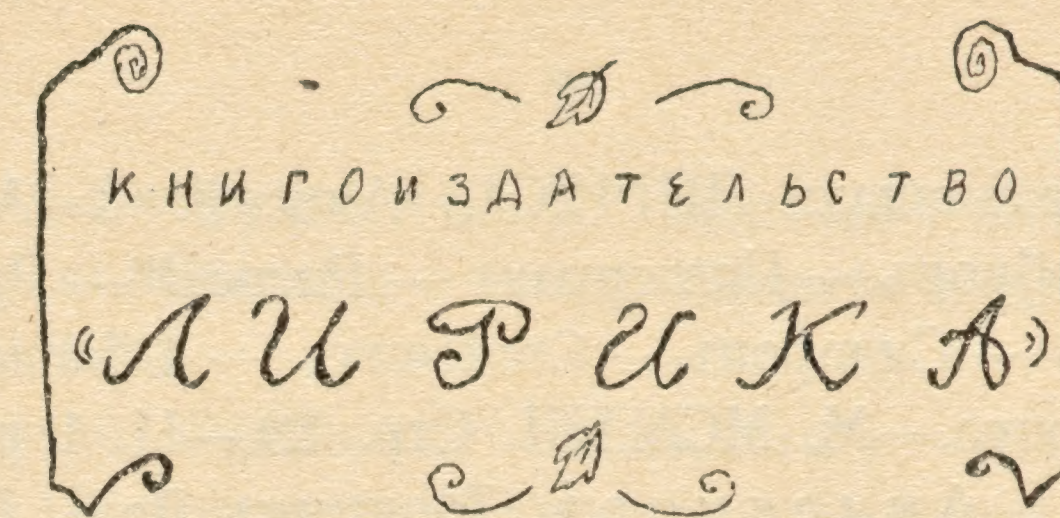 КНИГОИЗДАТЕЛЬСТВО
«ЛИРИКА»